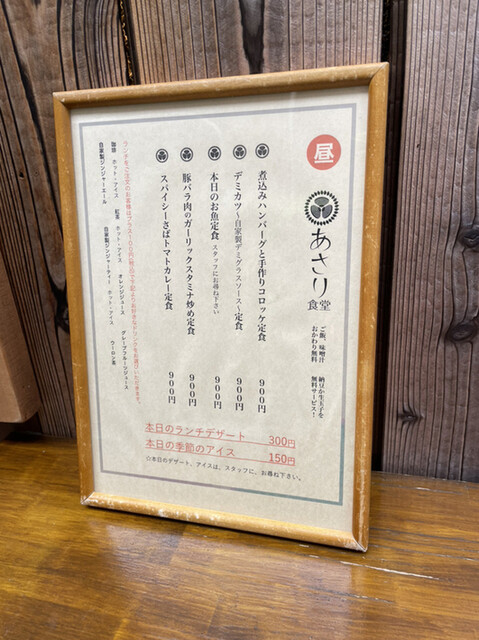 昼
あさり
食堂
ご飯、味噌汁
おかわり無料
納豆か生玉子を
無料サービス！
煮込みハンバーグと手作りコロッケ定食 900円
デミカツ〜自家製デミグラスソース〜定食 900円
本日のお魚定食 スタッフにお尋ね下さい 900円
豚バラ肉のガーリックスタミナ炒め定食 900円
スパイシーさばトマトカレー定食 900円
ランチをご注文のお客様はプラス100円(税込)で下記よりお好きなドリンクをお選びいただけます。
珈琲 ホット・アイス 紅茶 ホット・アイス オレンジジュース グレープフルーツジュース
自家製ジンジャーエール 自家製ジンジャーティー ホット・アイス ウーロン茶
本日のランチデザート 300円
本日の季節のアイス 150円
☆本日のデザート、アイスは、スタッフに、お尋ね下さい。